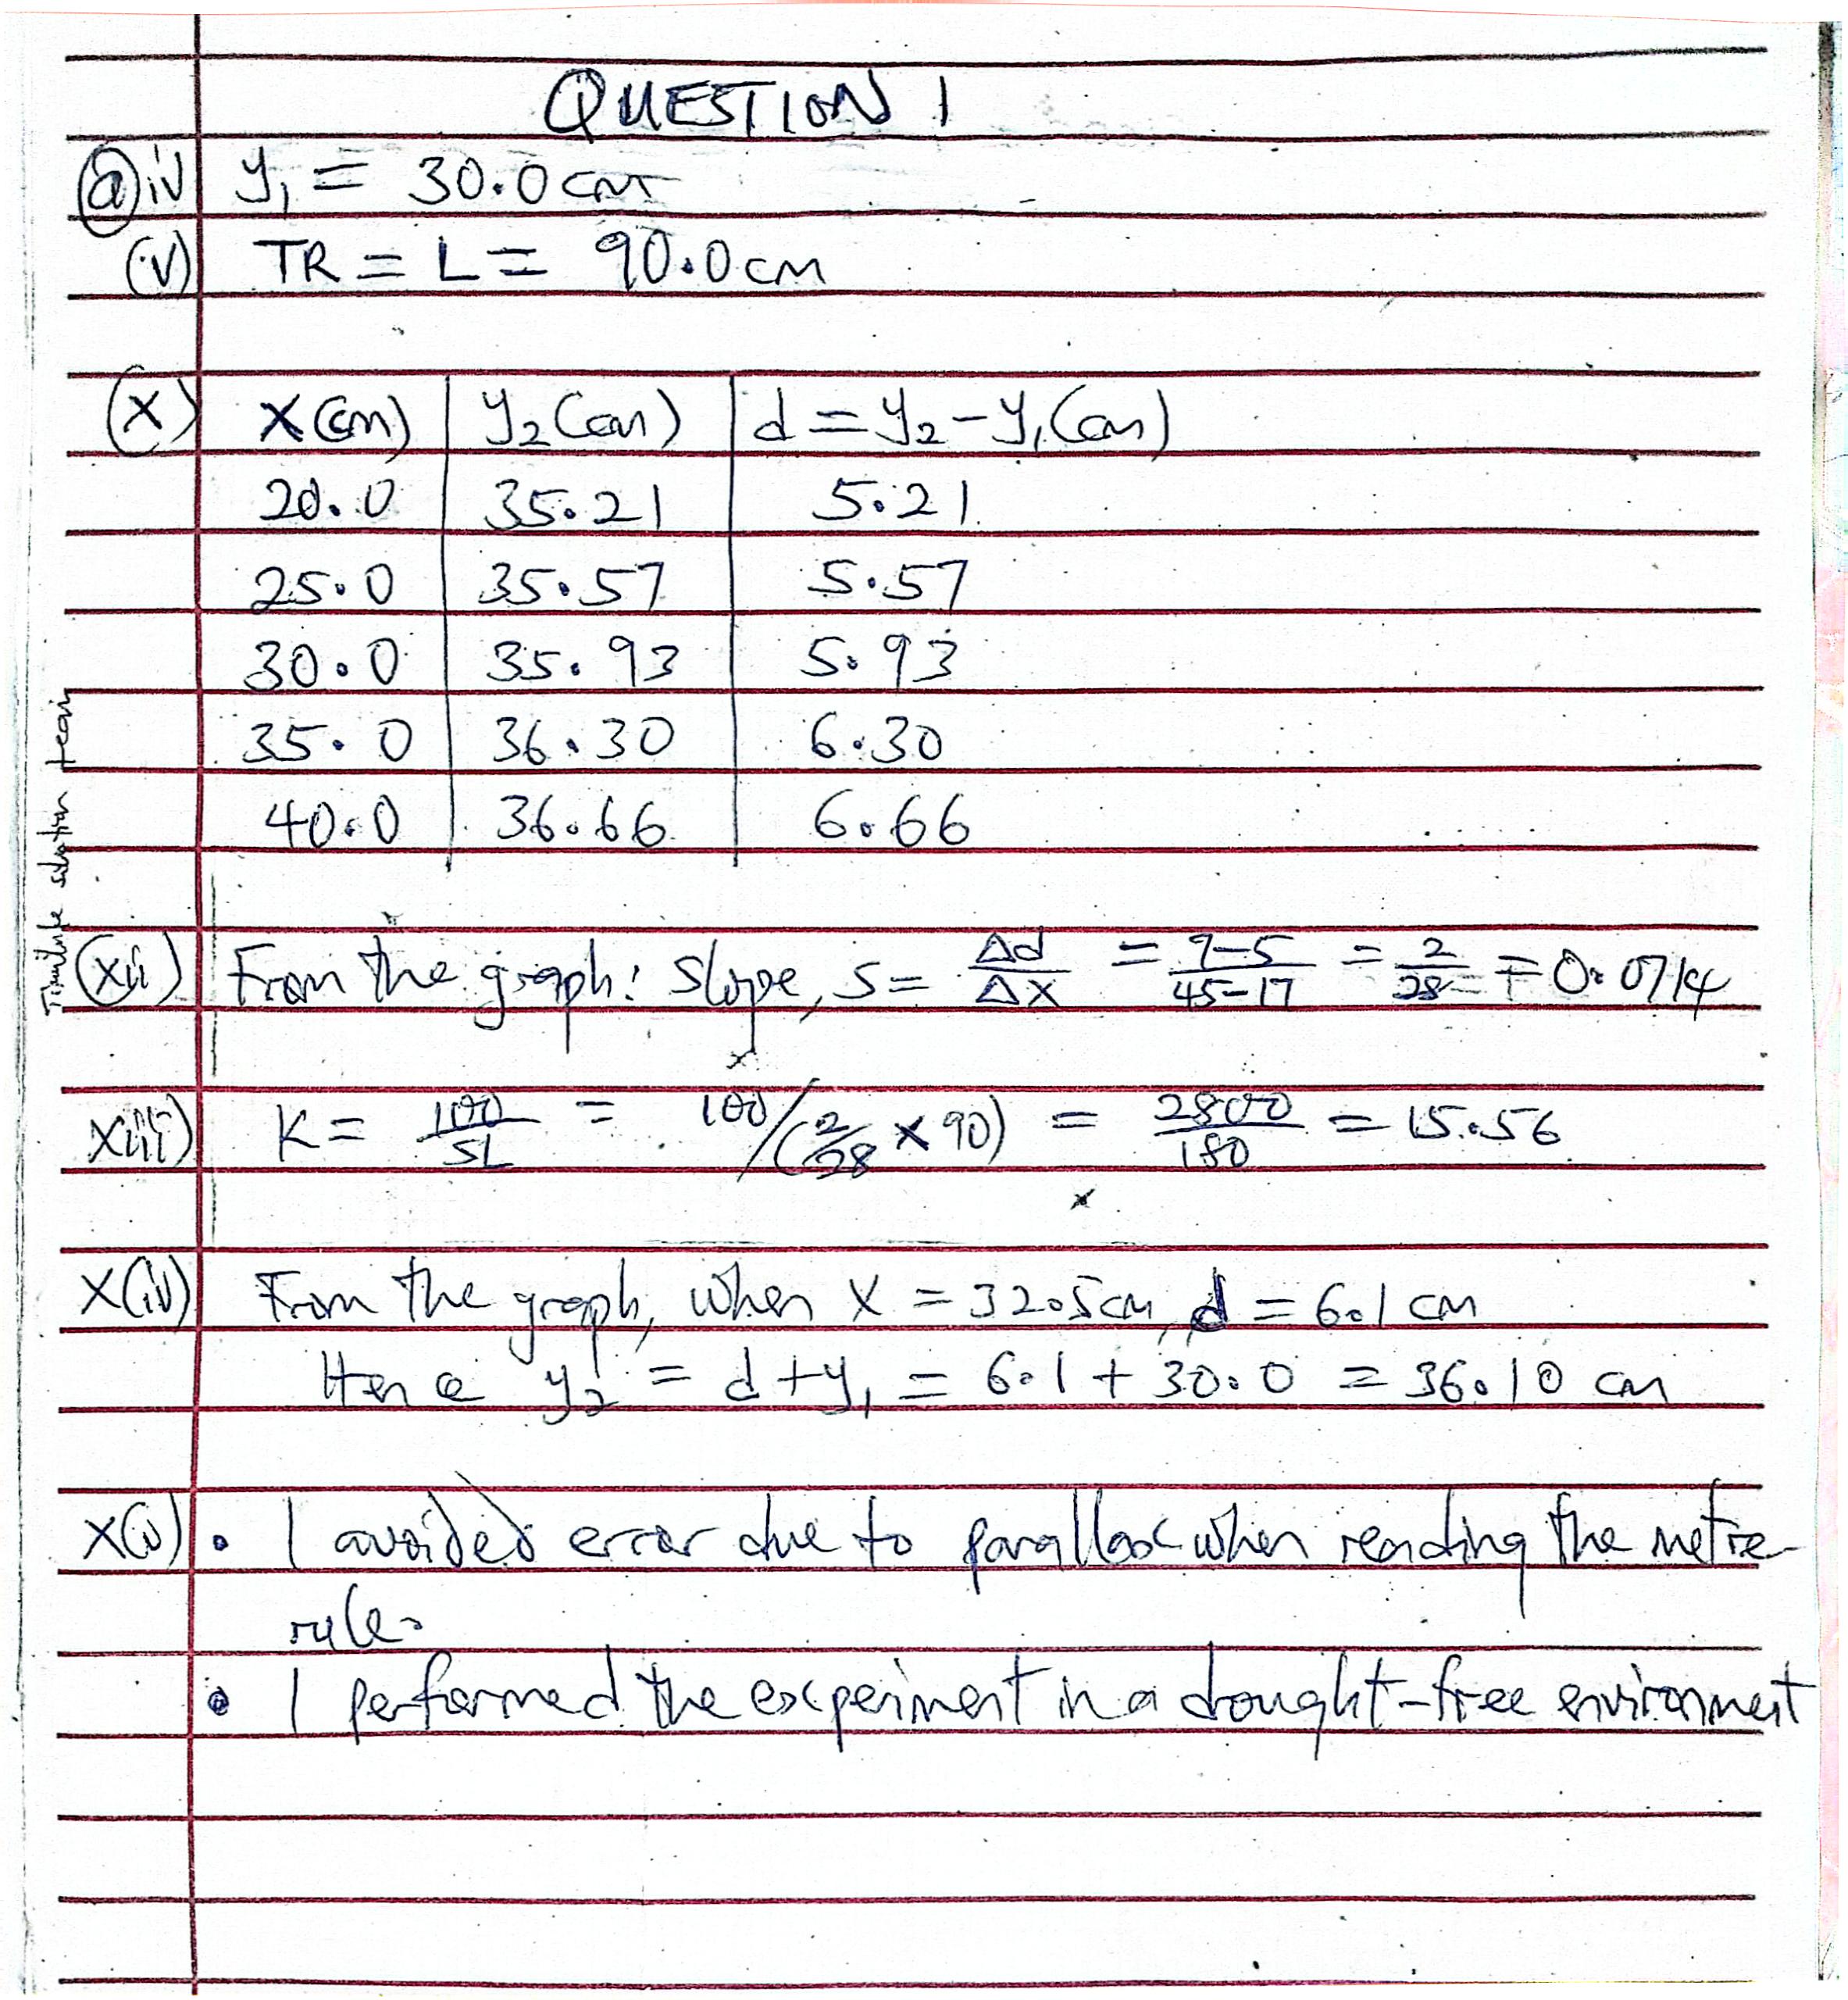 QUESTION 1
(a) iv) y₁ = 30.0 cm
(v) TR = L = 90.0 cm
(x) x (cm) | y₂ (cm) | d = y₂ - y₁ (cm)
20.0 | 35.21 | 5.21
25.0 | 35.57 | 5.57
30.0 | 35.93 | 5.93
35.0 | 36.30 | 6.30
40.0 | 36.66 | 6.66
(xii) From the graph: Slope, s = Δd/Δx = 7-5/45-17 = 2/28 = 0.0714
xiii) K = 100/SL = 100/(2/28 × 90) = 2800/180 = 15.56
x(iv) From the graph, when x = 32.5cm, d = 6.1 cm
Hence y₂ = d + y₁ = 6.1 + 30.0 = 36.10 cm
x(v) • I avoided error due to parallax when reading the metre
rule.
• I performed the experiment in a drought-free environment
solution team